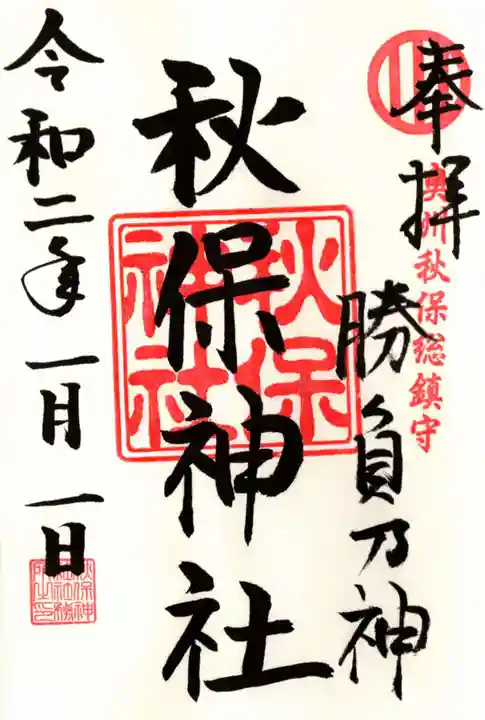 奉拝
奥州秋保総鎮守
勝負乃神
秋保神社
秋保
神社
令和二年一月一日
秋保神
社社務
所之印